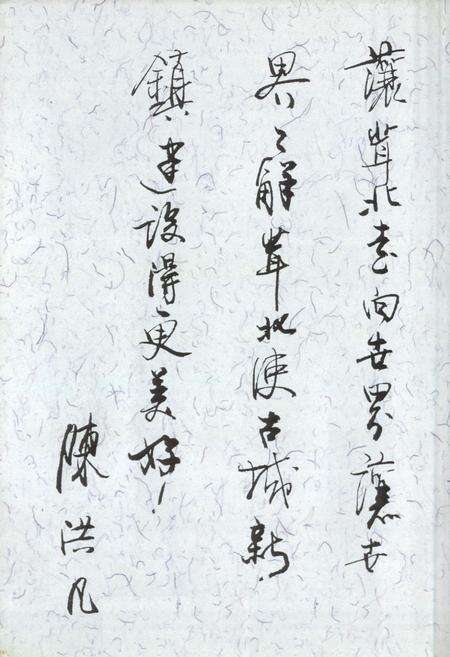 讓茸北走向世界讓世
界了解茸北使古城新
鎮建設得更美好！
陳洪凡